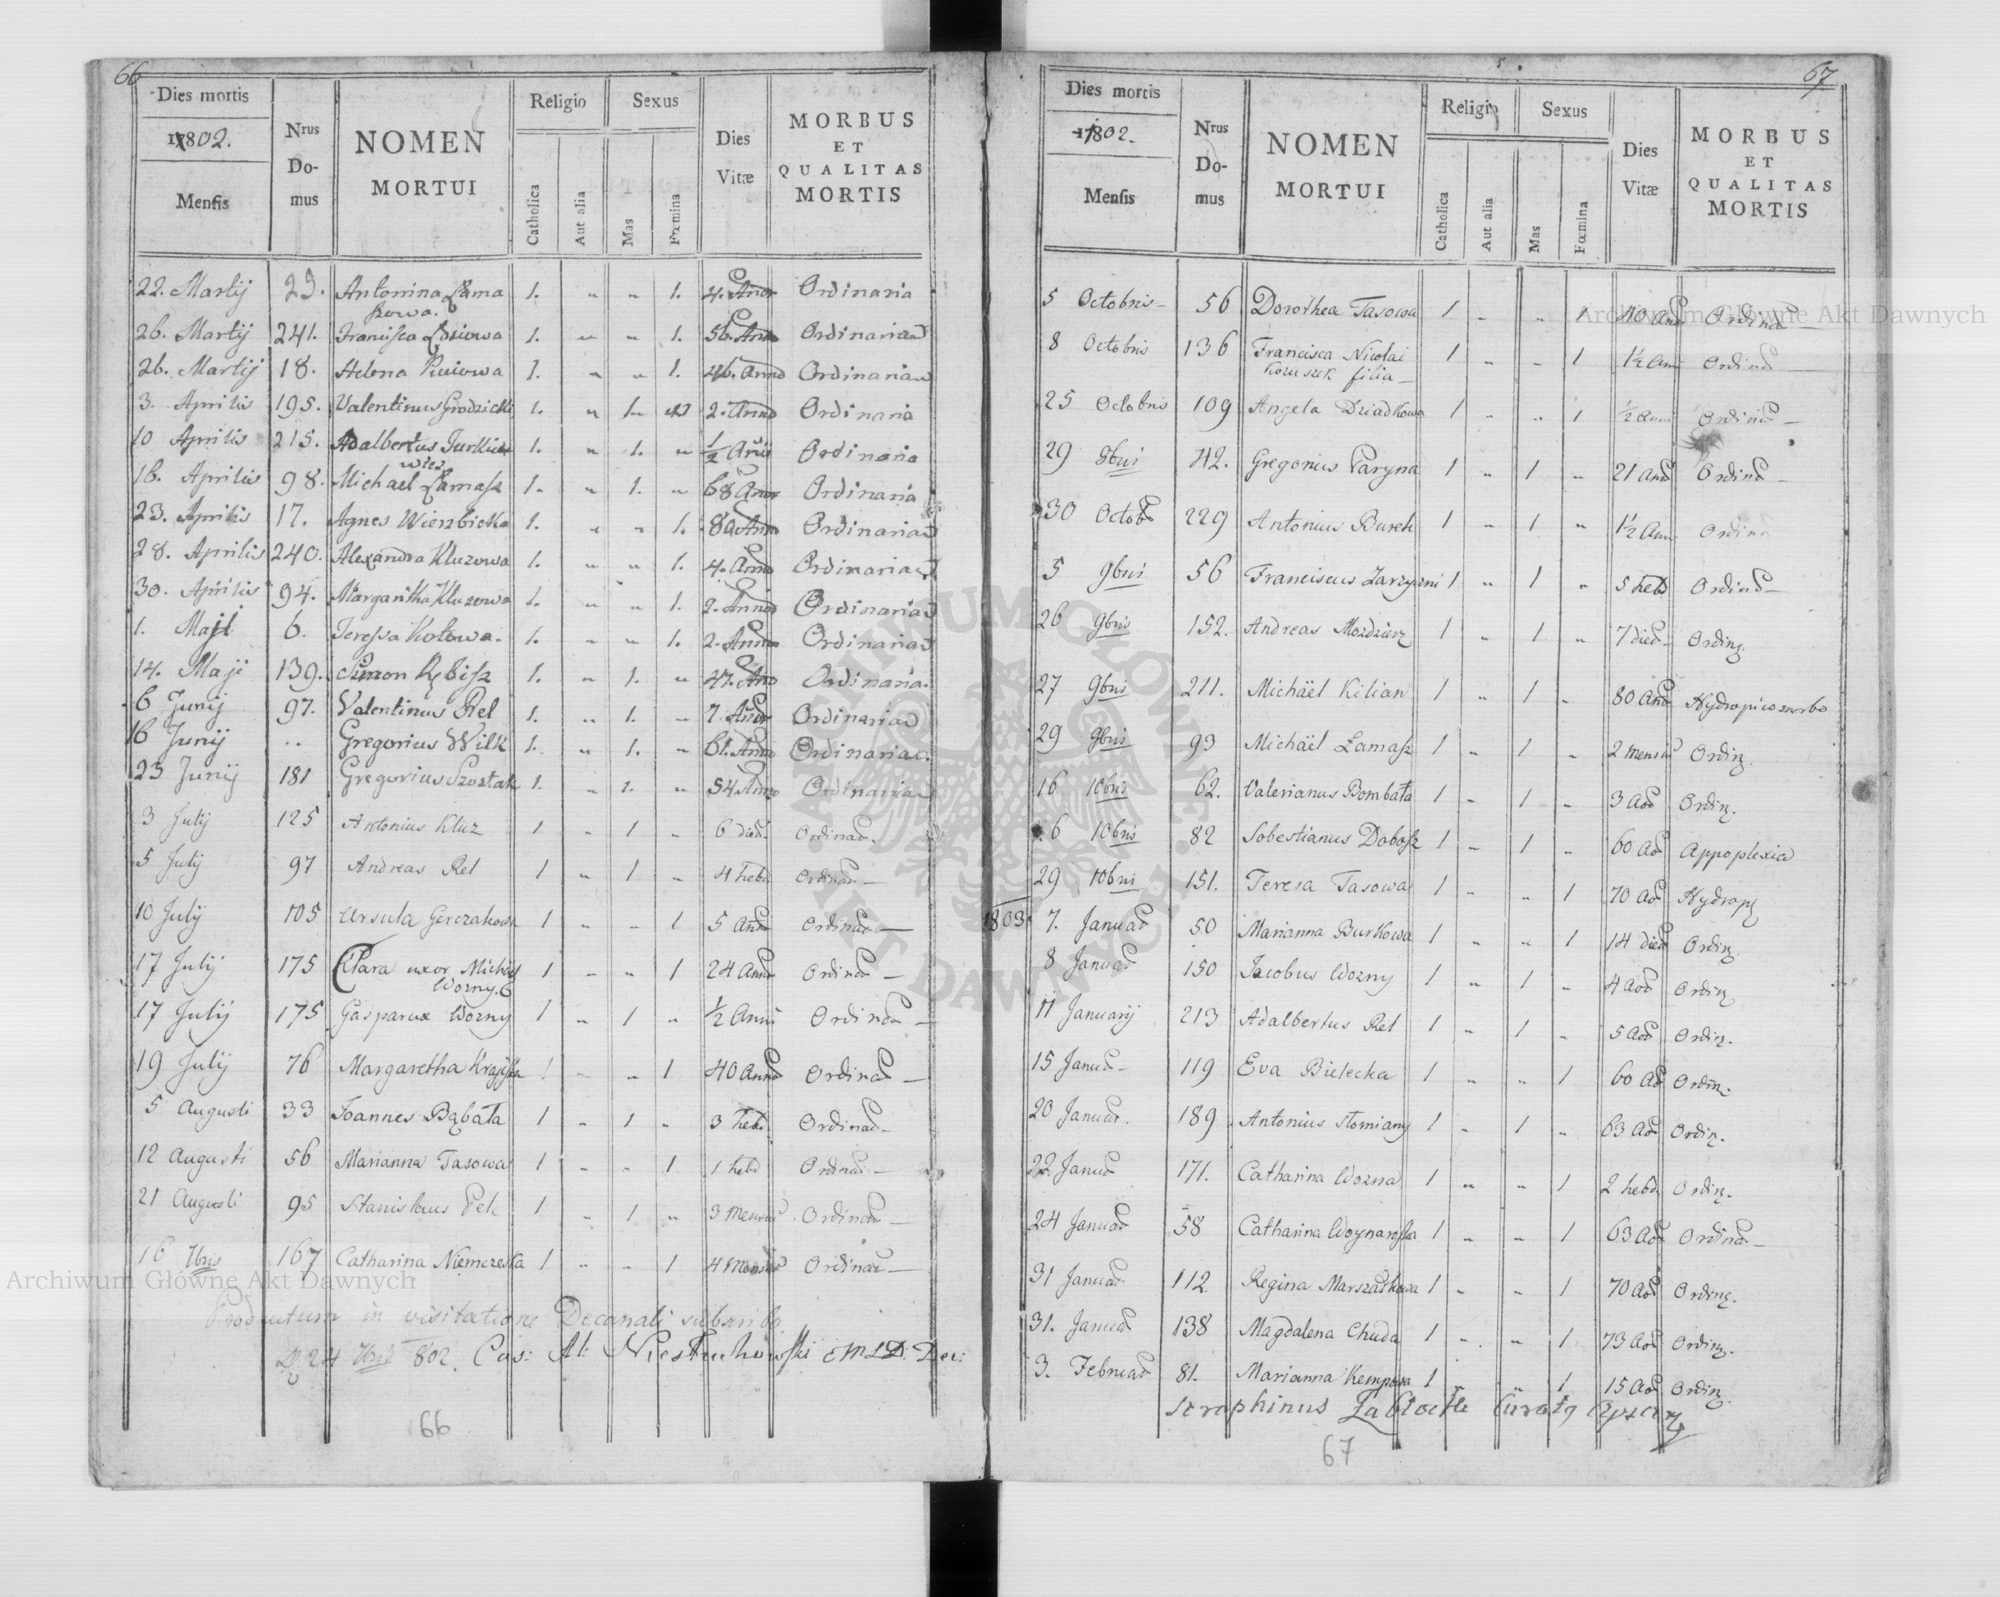 66
Dies mortis
17802.
Mensis
Nrus Domus
NOMEN MORTUI
Religio
Catholica
Aut alia
Sexus
Mas
Fœmina
Dies Vitæ
MORBUS ET QUALITAS MORTIS
22. Martij 23. Antonina Łama 1. " " 1. 4. Ordinaria
szowa.
26. Martij 241. 1. " " 1. 56. Ordinaria
26. Martij 18. Helena 1. " " 1. 46. Anno Ordinaria
3. Aprilis 195. Valentinus Grodzicki 1. " 1. 2. Anno Ordinaria
10 Aprilis 215. Adalbertus Jurkie 1. " 1. " 1/2 Ordinaria
wicz
16. Aprilis 98. Michael Łamasz 1. " 1. " 68 Ordinaria
23. Aprilis 17. Agnes Wierzbicka 1. " " 1. 80 Ordinaria
28. Aprilis 240. Alexandra Kluzowa 1. " " 1. 4. Anno Ordinaria
30. Aprilis 94. Margaritha Kluzowa 1. " " 1. 2. Anno Ordinaria
1. Maji 6. Teressa Kotowa. 1. " " 1. 2. Anno Ordinaria
14. Maji 139. Simon Rębisz 1. " 1. " 47. Ordinaria.
6 Junij 97. Valentinus Rel 1. " 1. " 7. Ordinaria
16 Junij " Gregorius Wilk 1. " 1. " 61. Anno Ordinaria
23 Junij 181 Gregorius Szostak 1. " 1. " 54. Ordinaria
3 July 125 Antonius Kluz 1 " 1 " 6 died Ordinar.
5 July 97 Andreas Rel 1 " 1 " 4 hebd Ordinar
10 July 105 Ursula 1 " " 1 5 Ann Ordinar
17 July 175 Clara uxor Michael 1 " " 1 24 Ann Ordinar
Wozny.
17 July 175 Gasparus Wozny 1 " 1 " 1/2 Anni Ordinar
19 July 76 Margaretha 1 " " 1 40 Ann Ordinar
5 Augusti 33 Joannes Bąbała 1 " 1 " 3 hebd Ordinar
12 Augusti 56 Marianna Tasowa 1 " " 1 1 hebd Ordinar
21 Augusti 95 Stanislaus Pelc 1 " 1 " 3 Ordinar
16 7bris 167 Catharina Niemczeska 1 " " 1 4 Ordinar
Productum in visitatione Decanali
24 7bris 802.
66
67
Dies mortis
17802.
Mensis
Nrus Domus
NOMEN MORTUI
Religio
Catholica
Aut alia
Sexus
Mas
Fœmina
Dies Vitæ
MORBUS ET QUALITAS MORTIS
5 Octobris 56 Dorothea Tasowa 1 " " 1 40 Ordinar
8 Octobris 136 Francisca Nicolai 1 " " 1 1½ Ordinar
Kozuszek filia
25 Octobris 109 Angela Dziadkowa 1 " " 1 ½ Anni Ordinar
29 8bris 42. Gregorius Paryna 1 " 1 " 21 Ordinar
30 Octob 229 Antonius Burek 1 " 1 " 1½ Ordinar
5 9bris 56 Franciscus Zarzyczni 1 " 1 " 5 hebd Ordinar
26 9bris 152. Andreas Mozdzierz 1 " 1 " 7 died Ordinę.
27 9bris 211. Michäel Kilian 1 " 1 " 80 Hydropico morbo
29 9bris 93 Michäel Łamasz 1 " 1 " 2 mensium Ordinę.
16 10bris 62. Valerianus Bombała 1 " 1 " 3 Ordinę.
6 10bris 82 Sobestianus Dabosz 1 " 1 " 60 Appoplexia
29 10bris 151. Teresa Tasowa 1 " " 1 70 Hydrop
1803. 7. Januar 50 Marianna Burkowa 1 " " 1 14 died Ordinę.
8 Januar 150 Jacobus Wozny 1 " 1 " 4 Ordinę
11 Januarij 213 Adalbertus Rel 1 " 1 " 5 Ordinę.
15 Januar 119 Eva Bielecka 1 " " 1 60 Ordinę.
20 Januar. 189 Antonius Słomiany 1 " 1 " 63 Ordinę.
22 Januar 171. Catharina Wozna 1 " " 1 2 hebd. Ordinę.
24 Januar 58 Catharina 1 " " 1 63 Ordinar
31 Januar 112 Regina Marszałkowa 1 " " 1 70 Ordinę.
31. Januar 138 Magdalena Chuda 1 " " 1 73 Ordinę.
3. Februar 81. Marianna Kempowa 1 " " 1 15 Ordinę
Seraphinus
67
Archiwum Główne Akt Dawnych
Archiwum Główne Akt Dawnych
ARCHIWUM GŁÓWNE AKT DAWNYCH